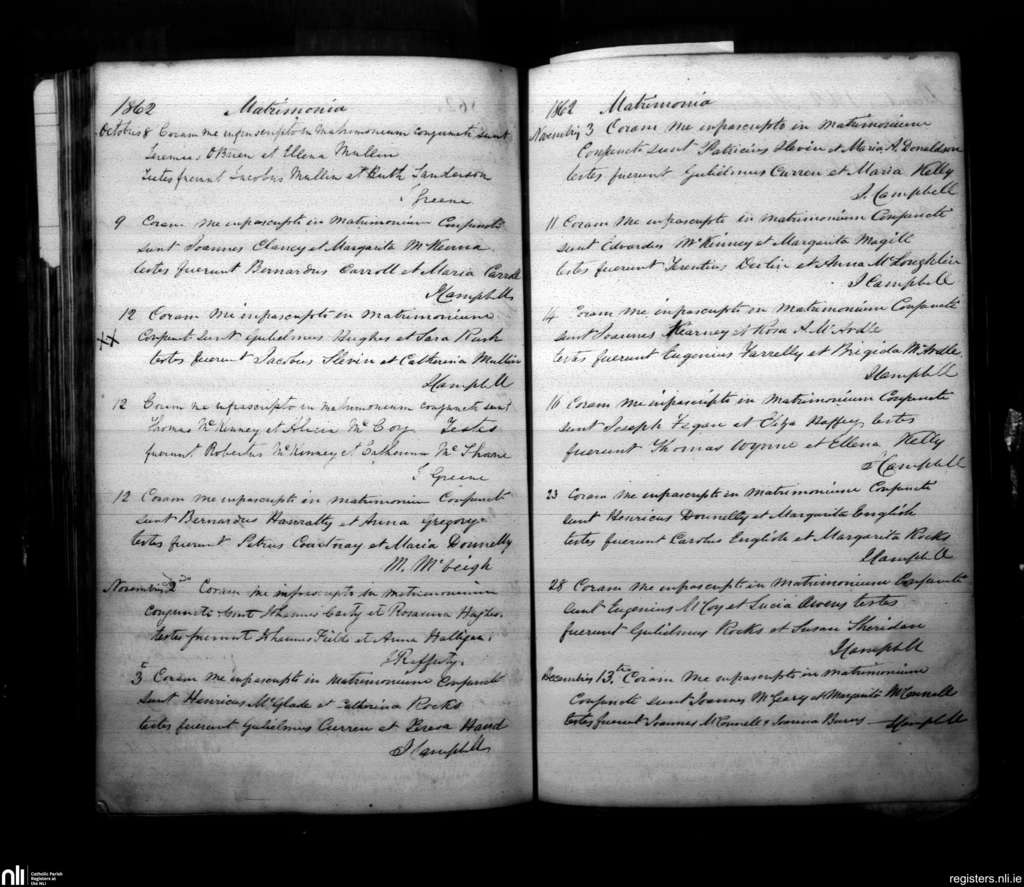 1862 Matrimonia
Octobris 8 Coram me infrascripto in Matrimonium conjuncti sunt
Jeremias O'Brien et Ellena Mullin
Testes fuerunt Jacobus Mullin et Ruth Sanderson
J Greene
9 Coram me infrascripto in Matrimonium Conjuncti
sunt Joannes Clancy et Margarita McKeorna
testes fuerunt Bernardus Carroll et Maria Carroll
J Campbell
12 Coram me infrascripto in matrimonium
Conjuncti sunt Gulielmus Hughes et Sara Rush
testes fuerunt Jacobus Slevin et Catherina Mullin
J Campbell
12 Coram me infrascripto in matrimonium conjuncti sunt
Thomas McKinney et Alicia McCoy Testes
fuerunt Robertus McKinney et Catherina McShane
J Greene
12 Coram me infrascripto in matrimonium Conjuncti
sunt Bernardus Hanratty et Anna Gregory
testes fuerunt Petrus Courtnay et Maria Donnelly
M. McVeigh
Novembris 2nd Coram me infrascripto in matrimonium
Conjuncti sunt Johannes Carty et Rosanna Hughes.
testes fuerunt Johannes Fields et Anna Halligan.
J Rafferty.
3 Coram me infrascripto in Matrimonium Conjuncti
sunt Henricus McGlade et Catherina Rocks
testes fuerunt Gulielmus Curren et Teresa Hand
J Campbell
1862 Matrimonia
Novembris 3 Coram me infrascripto in matrimonium
Conjuncti sunt Patricius Slevin et Maria A. Donaldson
testes fuerunt Gulielmus Curren et Maria Kelly
J. Campbell
11 Coram me infrascripto in matrimonium Conjuncti
sunt Edvardus McKinney et Margarita Magill
testes fuerunt Terentius Devlin et Anna McLoughlin
J Campbell
14 Coram me infrascripto in Matrimonium Conjuncti
sunt Joannes Kearney et Rosa A. McArdle
testes fuerunt Eugenius Farrelly et Brigida McArdle
J Campbell
16 Coram me infrascripto in Matrimonium Conjuncti
sunt Joseph Fegan et Eliza Haffey testes
fuerunt Thomas Wynne et Ellena Kelly
J Campbell
23 Coram me infrascripto in Matrimonium Conjuncti
sunt Henricus Donnelly et Margarita English
testes fuerunt Carolus English et Margarita Rocks
J Campbell
28 Coram me infrascripto in Matrimonium Conjuncti
sunt Eugenius McCoy et Lucia Owens testes
fuerunt Gulielmus Rocks et Susan Sheridan
J Campbell
Decembris 13th Coram me infrascripto in matrimonium
Conjuncti sunt Joannes McGeary et Margarita McConnell
testes fuerunt Joannes McConnell & Joanna Burns — J Campbell
nli
Catholic Parish
Registers at
the NLI
registers.nli.ie